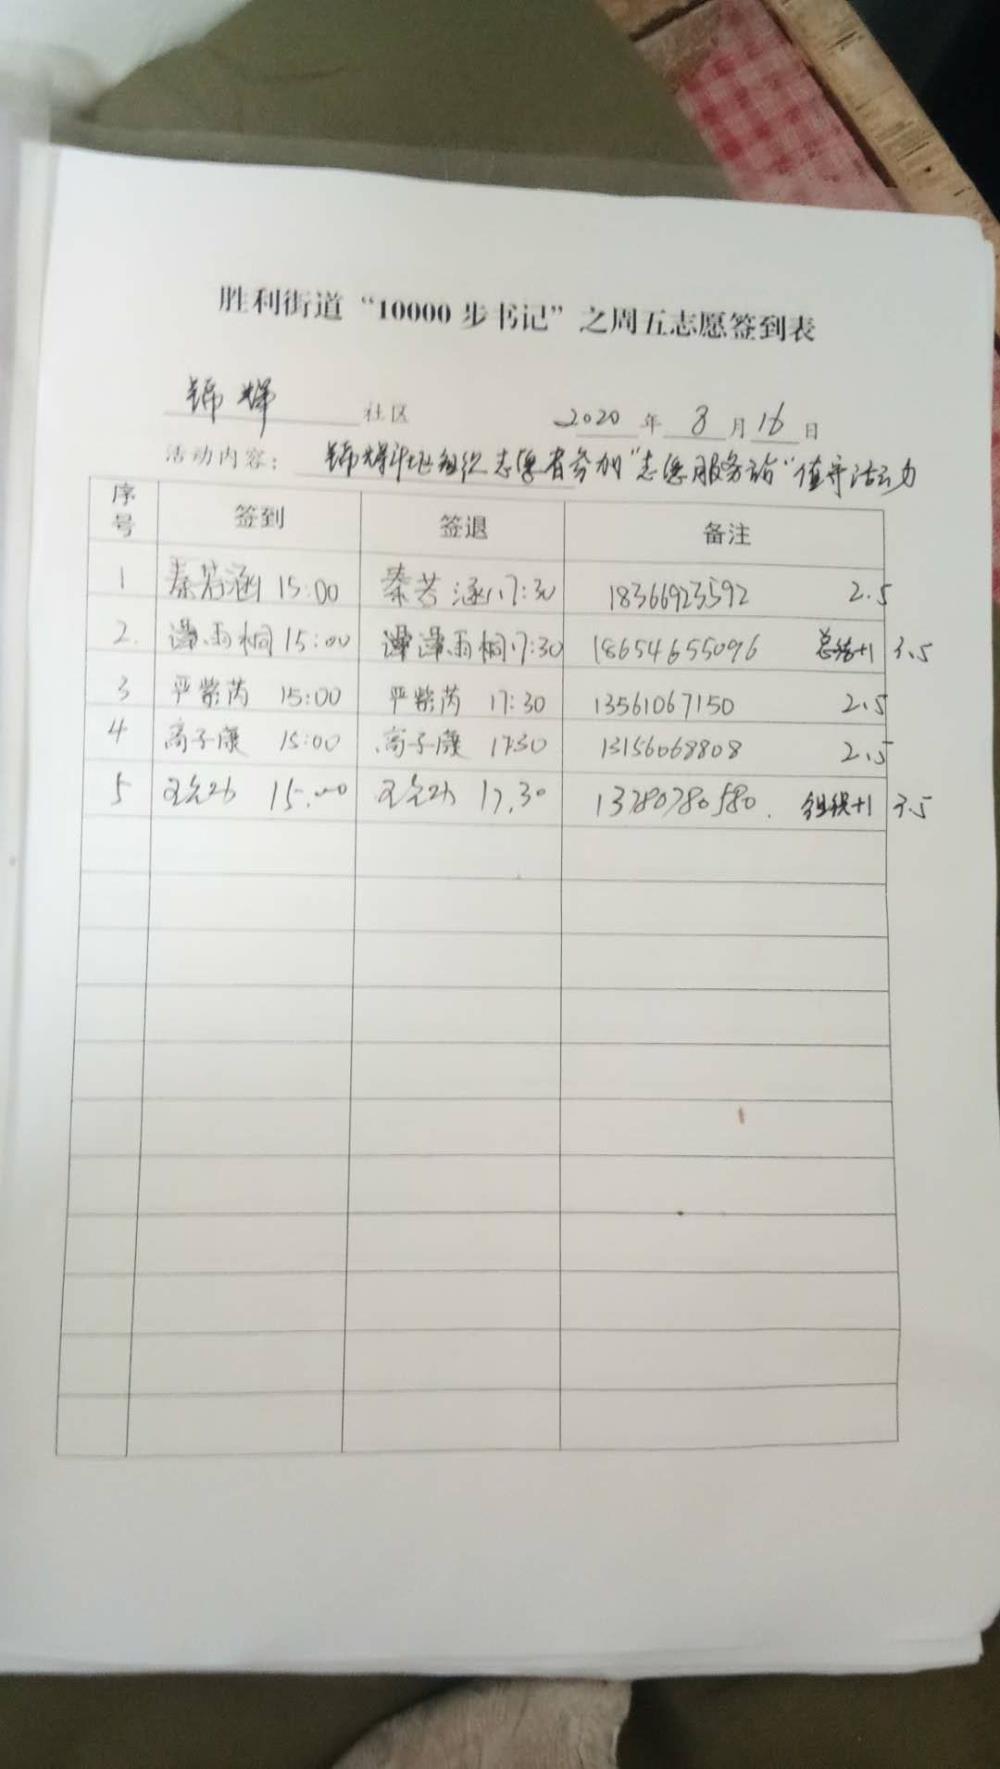 胜利街道“10000步书记”之周五志愿签到表
锦辉 社区 2020 年 8 月 16 日
活动内容: 锦辉社区组织志愿者参加“志愿服务站”值守活动
序号 签到 签退 备注
1 秦若涵 15:00 秦若涵 17:30 18366923592 2.5
2. 雨桐 15:00 雨桐 17:30 18654655096 总结+1 3.5
3 严紫芮 15:00 严紫芮 17:30 13561067150 2.5
4 高子康 15:00 高子康 17:30 13156068808 2.5
5 15:00 17:30 13780780580. 组织+1 3.5